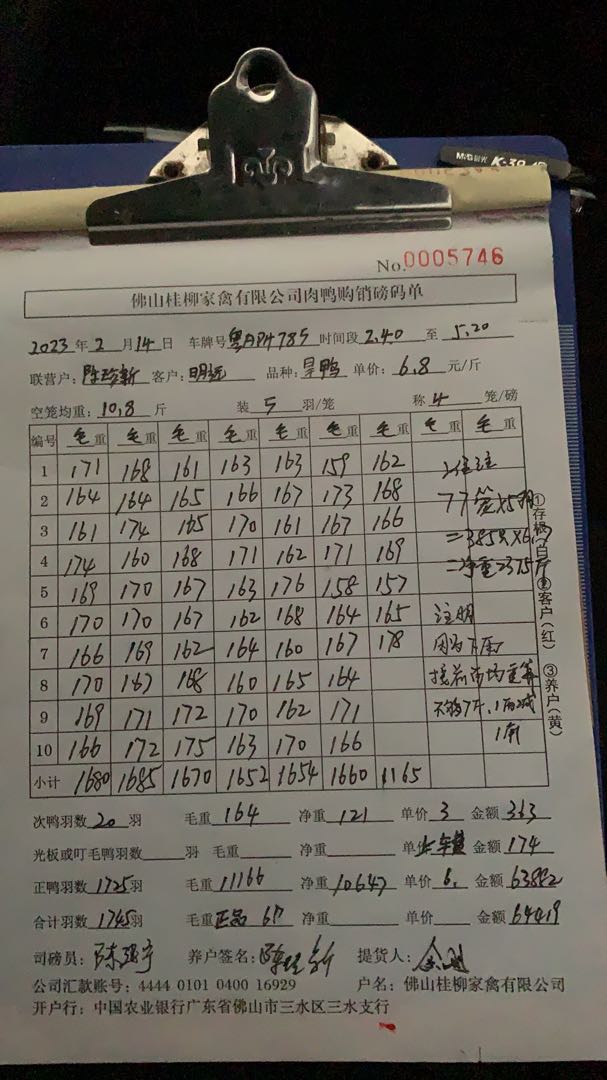 M&G晨光 K-39
No.0005746
佛山桂柳家禽有限公司肉鸭购销磅码单
2023年2月14日 车牌号 时间段2.40至5.20
联营户: 客户:明远 品种: 鸭 单价:6.8元/斤
空笼均重:10.8斤 装5羽/笼 称4笼/磅
编号 毛重 毛重 毛重 毛重 毛重 毛重 毛重 毛重 毛重
1 171 168 161 163 163 159 162
2 164 164 165 166 167 173 168 77笼×5
3 161 174 165 170 161 167 166 =385只×6.
4 174 160 168 171 162 171 169 =净重2375斤
5 169 170 167 163 176 158 157
6 170 170 167 162 168 164 165 注明
7 166 169 162 164 160 167 178 因为下雨
8 170 167 168 160 165 164
9 169 171 172 170 162 171 不够7斤.1两减
10 166 172 175 163 170 166 1角
小计 1680 1685 1670 1652 1654 1660 1165
①存根(白) ②客户(红) ③养户(黄)
次鸭羽数20羽 毛重164 净重121 单价3 金额363
光板或叮毛鸭羽数 羽 毛重 净重 单 金额174
正鸭羽数1725羽 毛重11166 净重10647 单价6. 金额63882
合计羽数1745羽 毛重正品 净重 单价 金额64419
司磅员: 养户签名: 提货人:
公司汇款账号: 4444 0101 0400 16929 户名: 佛山桂柳家禽有限公司
开户行: 中国农业银行广东省佛山市三水区三水支行